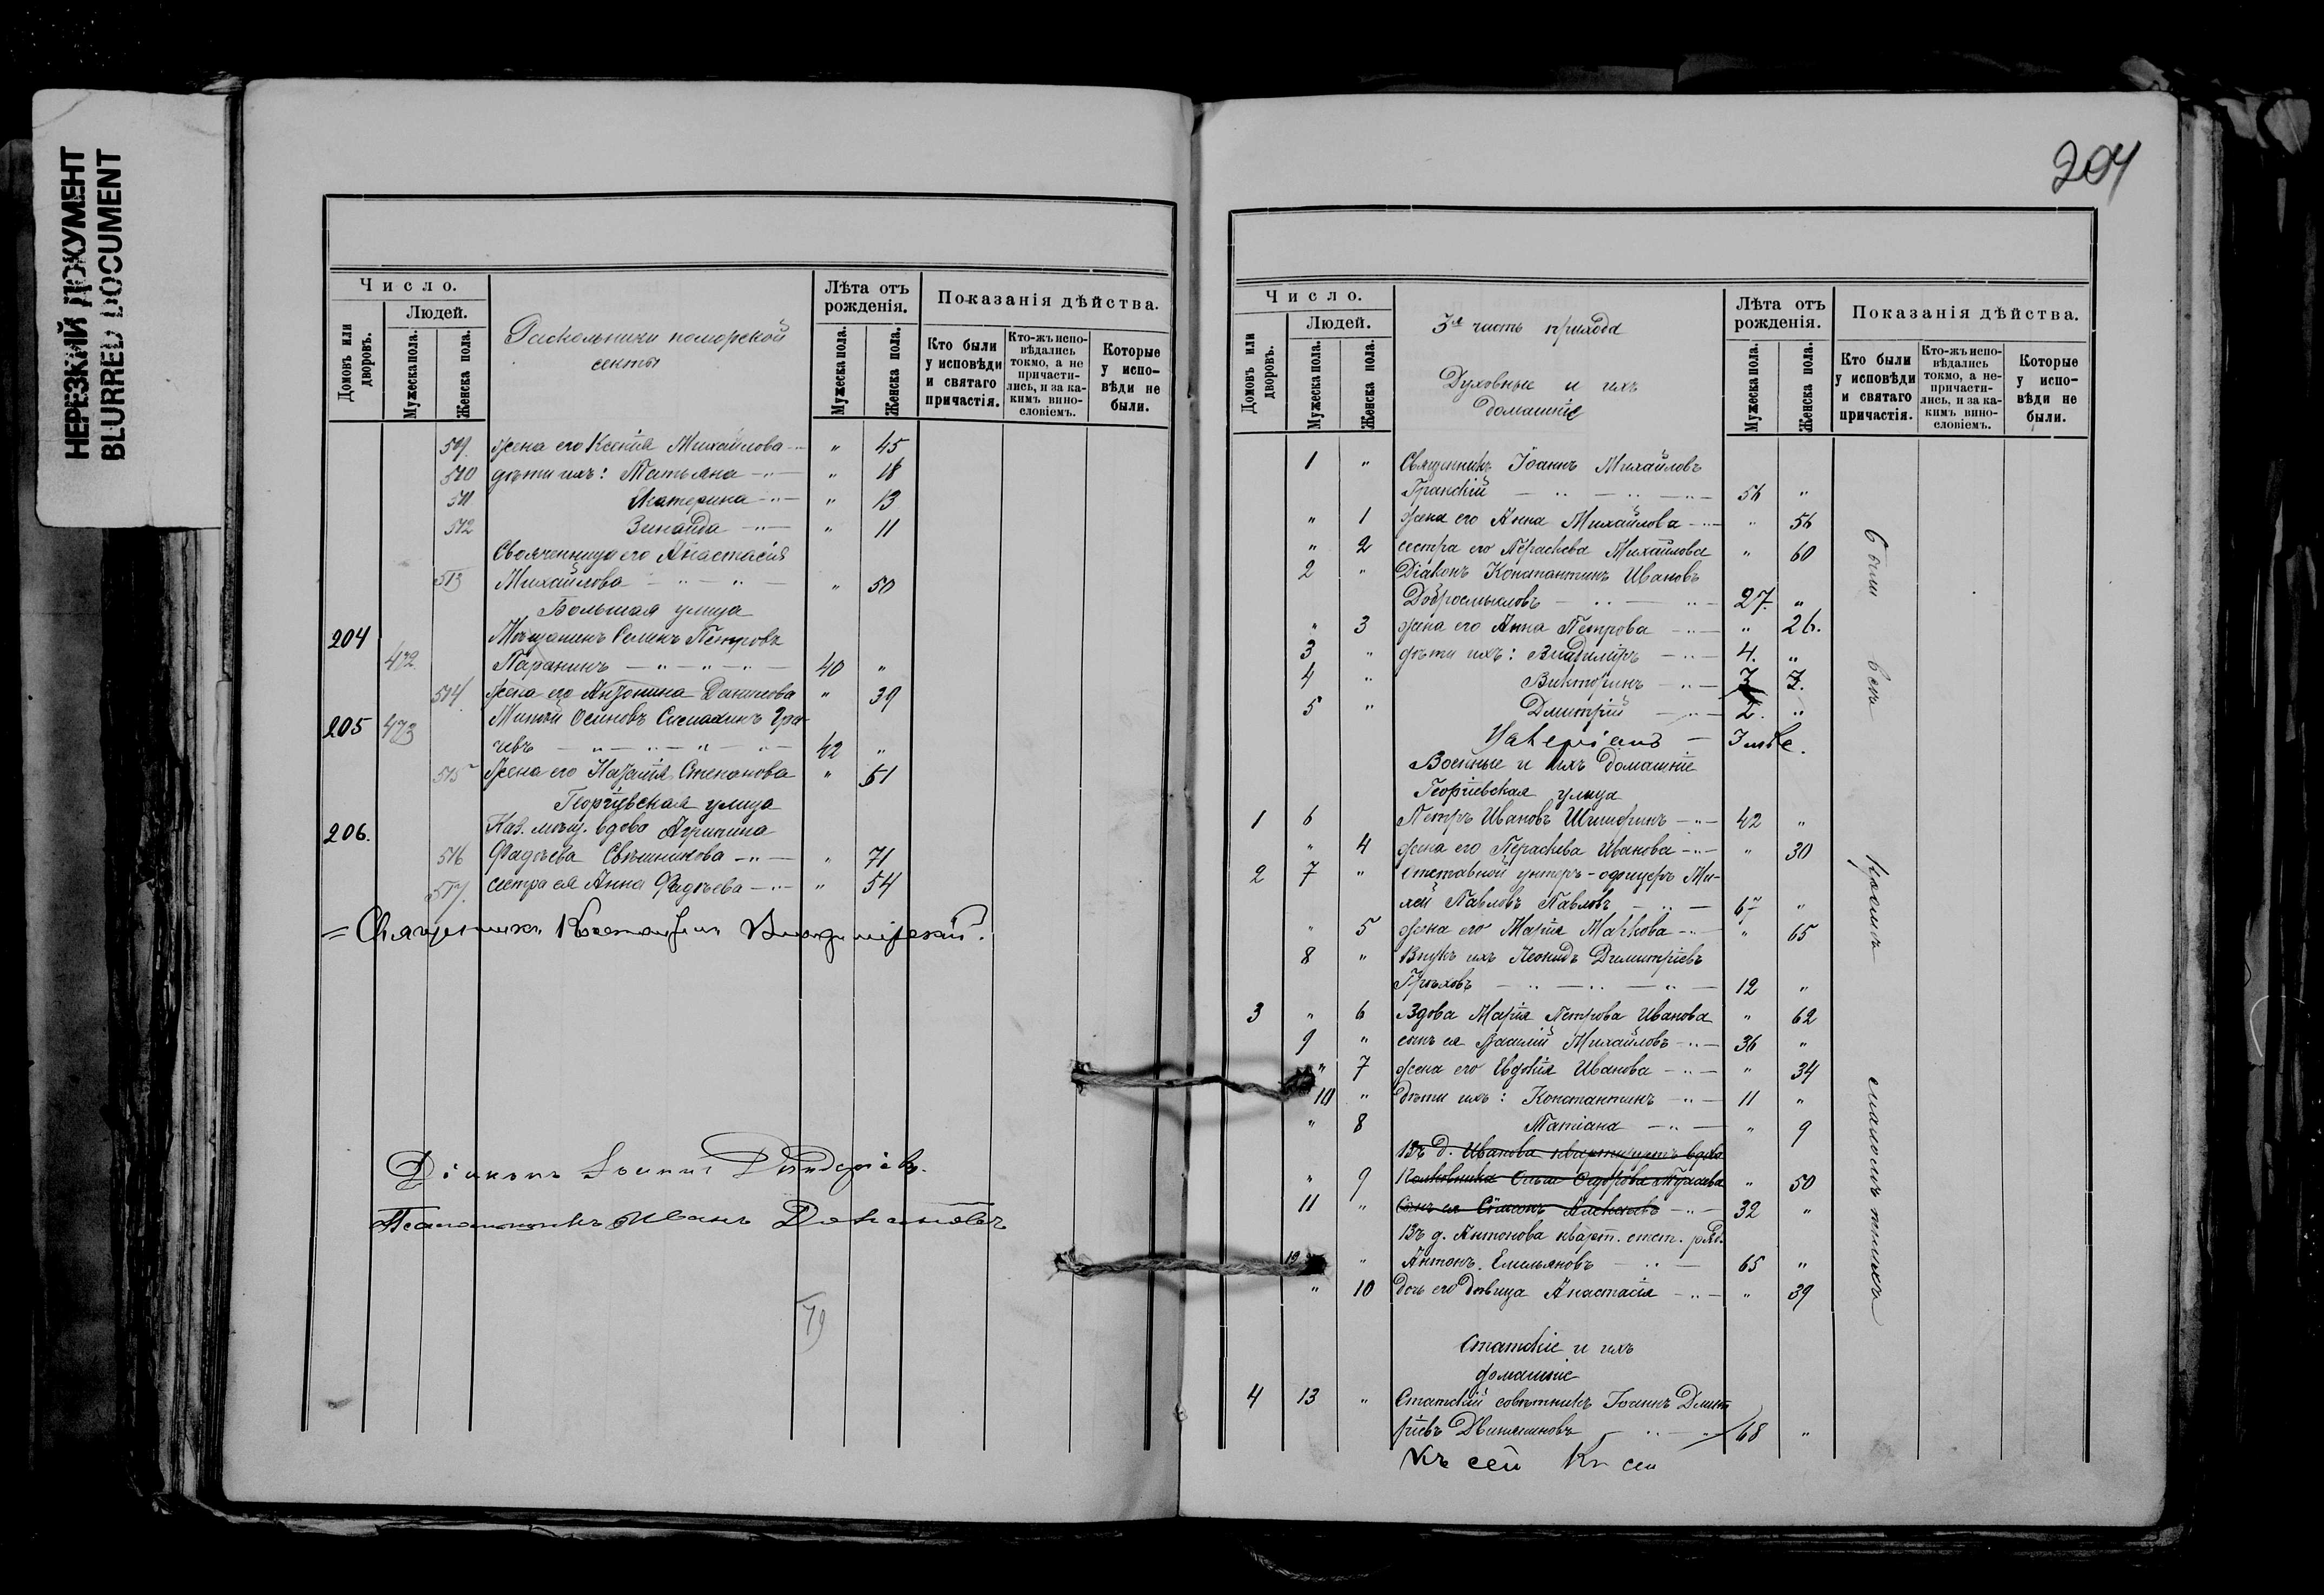 НЕРЕЗКИЙ ДОКУМЕНТ
BLURRED DOCUMENT
Число.
Людей.
Домовъ или дворовъ.
Мужеска пола.
Женска пола.
Раскольники поморской
секты
Лѣта отъ рожденія.
Мужеска пола.
Женска пола.
Показанія дѣйства.
Кто были у исповѣди и святаго причастія.
Кто-жъ исповѣдались токмо, а не причастились, и за какимъ винословіемъ.
Которые у исповѣди не были.
509. жена его Ксенія Михайлова " 45
510 дѣти ихъ: Татьяна " 18
511 Екатерина " 13
512 Зинаида " 11
Свояченница его Анастасія
513 Михайлова " 50
Большая улица
204 Мѣщанинъ Семенъ Петровъ
472. Паранинъ 40 "
514. жена его Антонина Данилова " 39
205 473 Осиповъ
42 "
515 жена его Наталія Степанова " 51
Георгіевская улица
206. Каз. мѣщ. вдова Агрипина
516 Фадѣева Свѣшникова " 71
517. сестра ея Анна Фадѣева " 54
Священникъ Константинъ Владимірскій.
Діаконъ Іоаннъ
Псаломщикъ Иванъ
79
204
Число.
Людей.
Домовъ или дворовъ.
Мужеска пола.
Женска пола.
3я часть прихода
Духовные и ихъ
домашніе
Лѣта отъ рожденія.
Мужеска пола.
Женска пола.
Показанія дѣйства.
Кто были у исповѣди и святаго причастія.
Кто-жъ исповѣдались токмо, а не причастились, и за какимъ винословіемъ.
Которые у исповѣди не были.
1 " Священникъ Іоаннъ Михайловъ
Гранскій 56 "
" 1 жена его Анна Михайлова " 56
" 2 сестра его Параскева Михайлова " 60
2 " Діаконъ Константинъ Ивановъ
Добросмысловъ 27. "
" 3 жена его Анна Петрова " 26.
3 " дѣти ихъ: Владиміръ 4. "
4 " Викторинъ
5 " Дмитрій 2. "
Валеріанъ
Военные и ихъ домашніе
Георгіевская улица
1 6 Петръ Ивановъ 42 "
" 4 жена его Параскева Иванова " 30
2 7 " отставной унтеръ-офицеръ Ми-
хей Павловъ Павловъ 67 "
" 5 жена его Марія Маркова " 65
8 " Внукъ ихъ Леонидъ Димитріевъ
Грѣховъ 12 "
3 " 6 Вдова Марія Петрова Иванова " 62
9 " сынъ ея Василій Михайловъ 36 "
" 7 жена его Евдокія Иванова " 34
10 " дѣти ихъ: Константинъ 11 "
" 8 Татіана " 9
Въ д. Иванова вдова
" 9 " 50
11 " Сынъ ея Симеонъ Алексѣевъ 32 "
Въ д. Антонова кварт. отст. ряд.
12 " Антонъ Емельяновъ 65 "
" 10 дочь его дѣвица Анастасія " 39
Статскіе и ихъ
домашніе
4 13 " Статскій совѣтникъ Іоаннъ Дмит
ріевъ 68 "
Къ сей Къ сей
Были всѣ кромѣ малолѣтнихъ